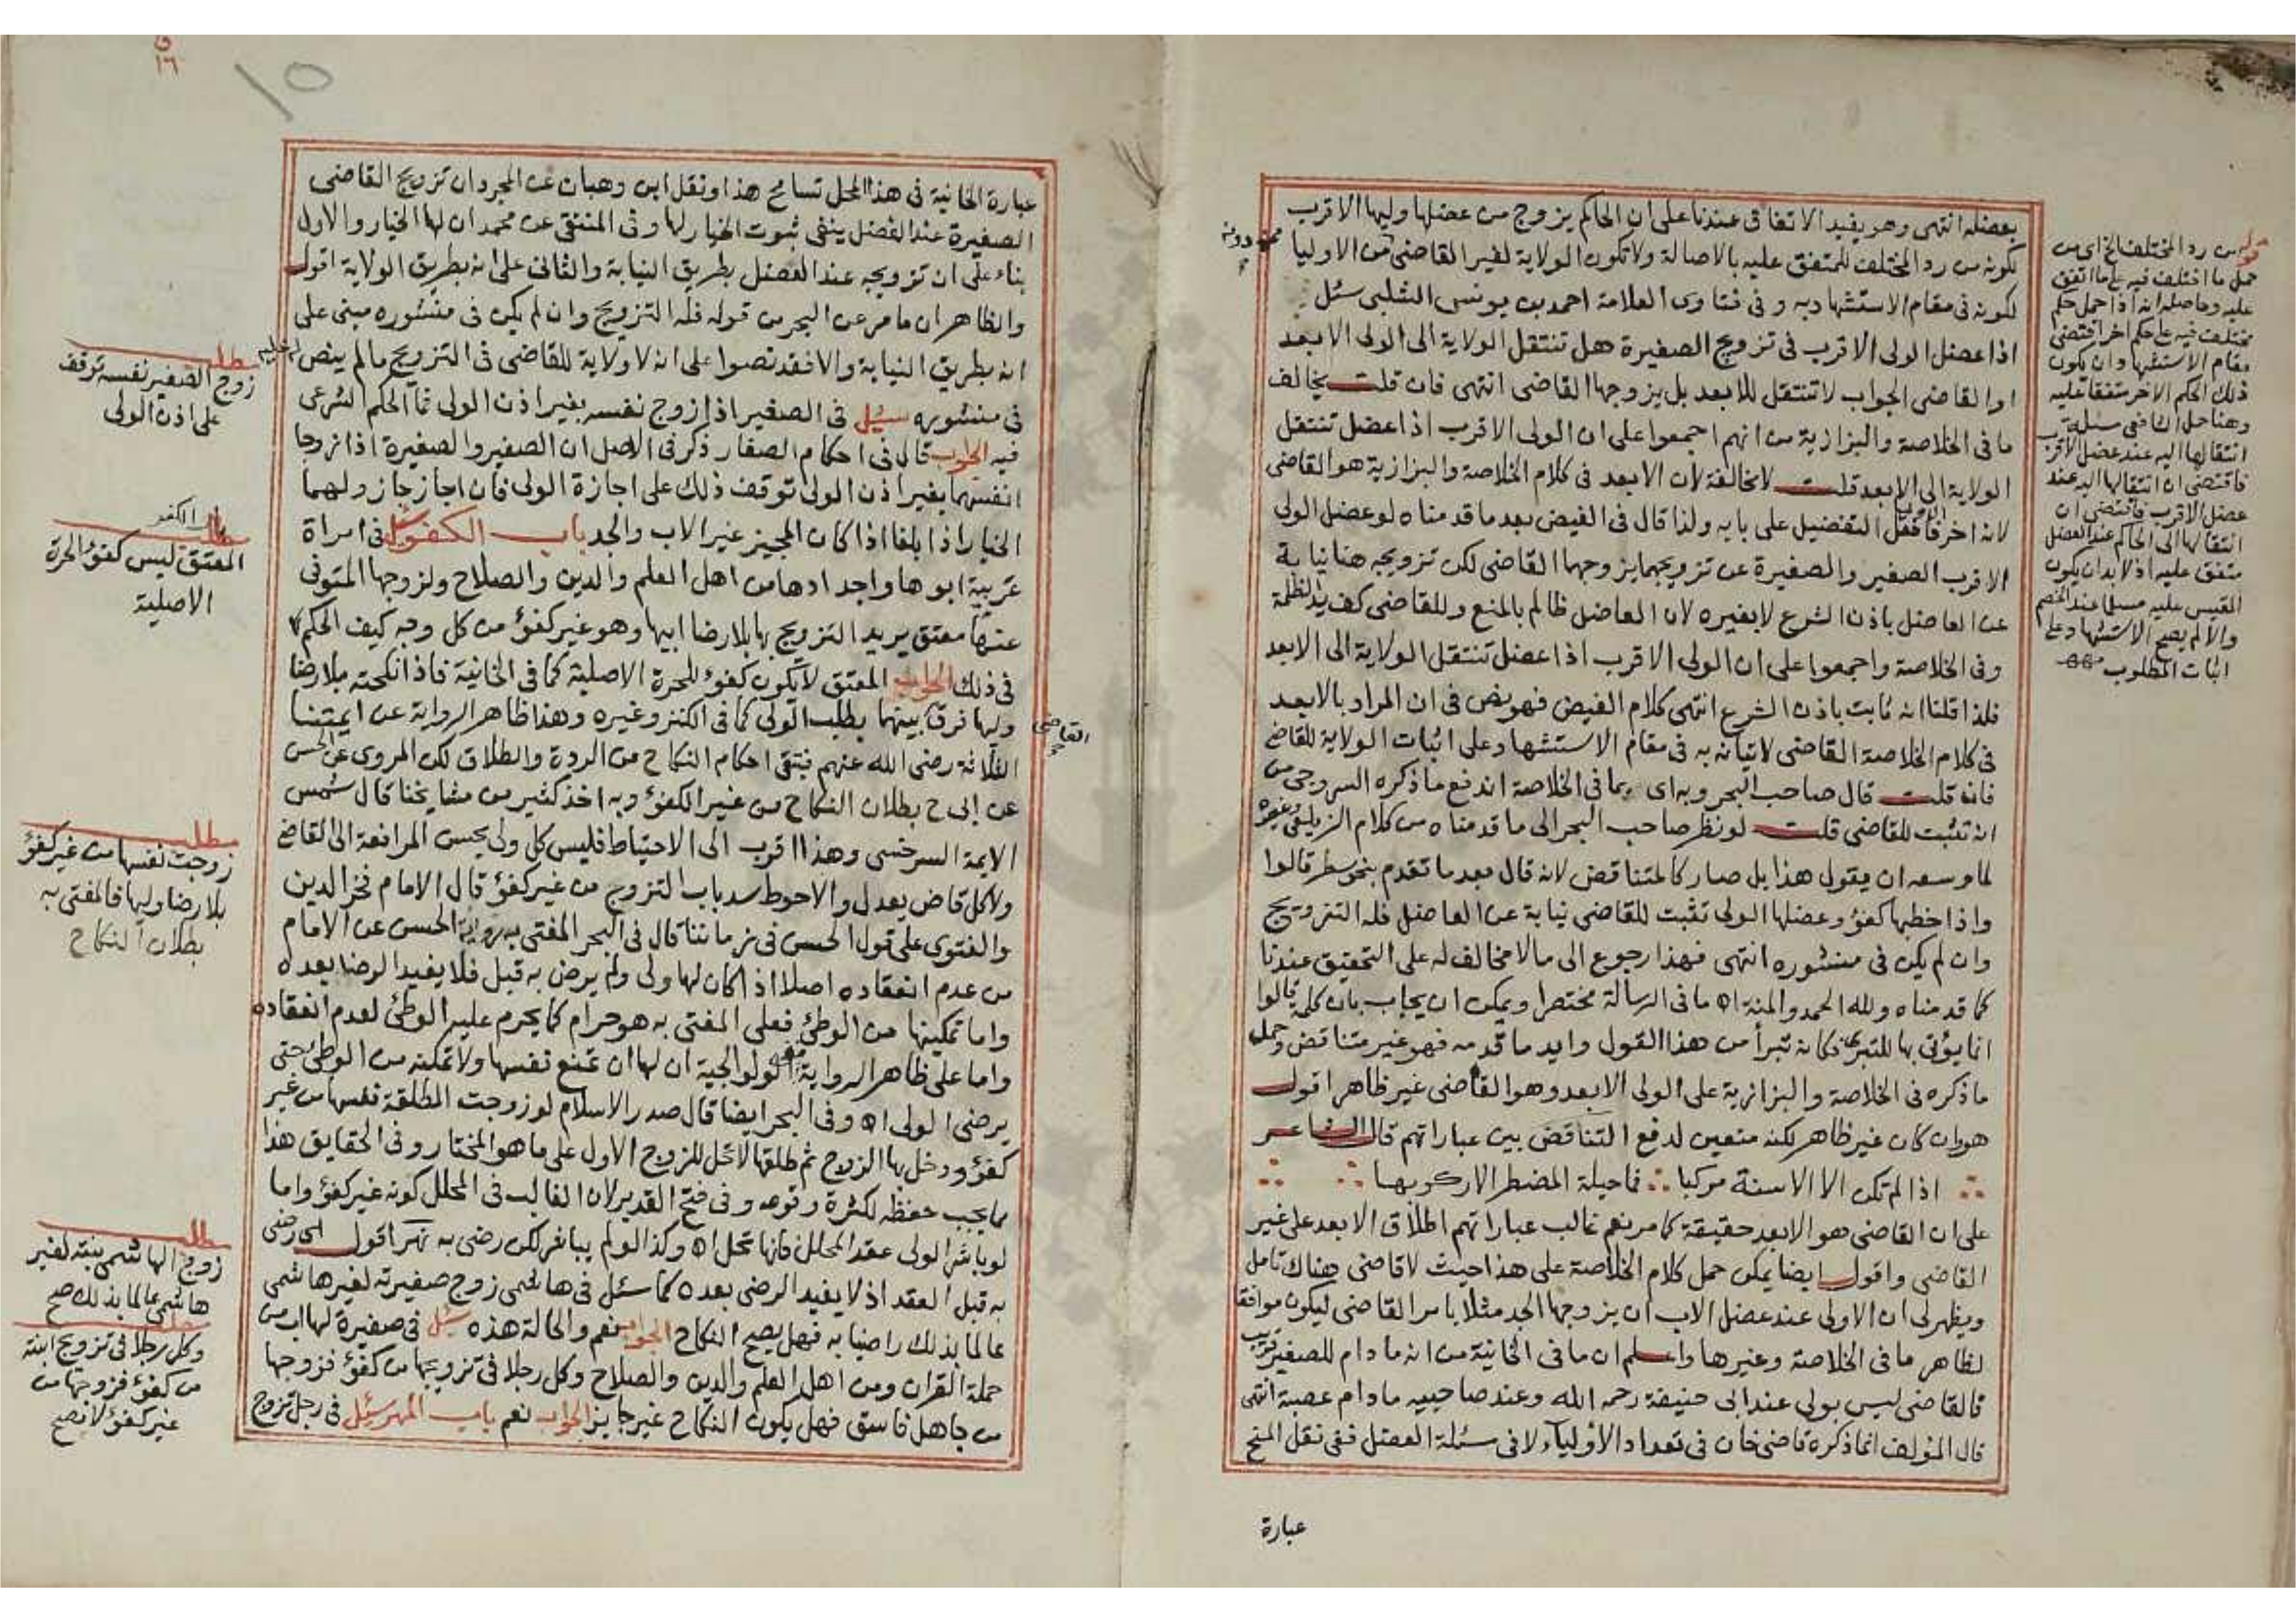 بعضله انتهى وهو يفيد الاتفاق عندنا على ان الحاكم يزوج من عضلها وليها الاقرب
لكونه من رد المختلف للمتفق عليه بالاصالة ولا تكون الولاية لغير القاضى من الاوليا
لكونه فى مقام الاستشهاد به وفى فتاوى العلامة احمد بن يونس الشلبى سئل
اذا عضل الولى الاقرب فى تزويج الصغيرة هل تنتقل الولاية الى الولى الابعد
او القاضى الجواب لا تنتقل للابعد بل يزوجها القاضى انتهى فان قلت يخالف
ما فى الخلاصة والبزازية من انهم اجمعوا على ان الولى الاقرب اذا عضل تنتقل
الولاية الى الابعد قلت لا مخالفة لان الابعد فى كلام الخلاصة والبزازية هو القاضى
لانه اخر الاوليا فافعل التفضيل على بابه ولذا قال فى الفيض بعد ما قدمناه لو عضل الولى
الاقرب الصغير والصغيرة عن تزويجهما يزوجهما القاضى لكن تزويجه هنا نيابة
عن العاضل باذن الشرع لا بغيره لان العاضل ظالم بالمنع وللقاضى كف يد الظلمة
وفى الخلاصة واجمعوا على ان الولى الاقرب اذا عضل تنتقل الولاية الى الابعد
فلذا قلنا انه ثابت باذن الشرع انتهى كلام الفيض فهو نص فى ان المراد بالابعد
فى كلام الخلاصة القاضى لاتيانه به فى مقام الاستشهاد على اثبات الولاية للقاضى
فان قلت قال صاحب البحر وبه اى بما فى الخلاصة اندفع ما ذكره السروجى من
ان تثبت للقاضى قلت لو نظر صاحب البحر الى ما قدمناه من كلام الزيلعى وغيره
لما وسعه ان يقول هذا بل صار كالمتناقض لانه قال بعد ما تقدم بنحو سطر قالوا
واذا خطبها كفؤ وعضلها الولى تثبت للقاضى نيابة عن العاضل فله التزويج
وان لم يكن فى منشوره انتهى فهذا رجوع الى ما لا مخالف له على التحقيق عندنا
كما قدمناه ولله الحمد والمنة اه ما فى الرسالة مختصرا ويمكن ان يجاب بان كلمة قالوا
انما يؤتى بها للتبرى فكانه تبرأ من هذا القول وايد ما قدمه فهو غير متناقض وحمل
ما ذكره فى الخلاصة والبزازية على الولى الابعد وهو القاضى غير ظاهر اقول
هو وان كان غير ظاهر لكنه متعين لدفع التناقض بين عباراتهم قال الشاعر
اذا لم تكن الا الاسنة مركبا فما حيلة المضطر الا ركوبها
على ان القاضى هو الابعد حقيقة كما مر نعم غالب عباراتهم اطلاق الابعد على غير
القاضى واقول ايضا يمكن حمل كلام الخلاصة على هذا حيث لا قاضى هناك تامل
ويظهر لى ان الاولى عند عضل الاب ان يزوجها الجد مثلا بامر القاضى ليكون موافقا
لظاهر ما فى الخلاصة وغيرها واعلم ان ما فى الخانية من انه ما دام للصغير قريب
فالقاضى ليس بولى عند ابى حنيفة رحمه الله وعند صاحبيه ما دام عصبة انتهى
قال المؤلف انما ذكره قاضى خان فى تعداد الاولياء لا فى مسئلة العضل ففى نقل المنح
عبارة
قوله من رد المختلف الخ اى من
حمل ما اختلف فيه على ما اتفق
عليه وحاصله انه اذا حمل حكم
مختلف فيه على حكم اخر اقتضى
مقام الاستشهاد ان يكون
ذلك الحكم الاخر متفقا عليه
انتقالها اليه عند عضل الاقرب
فاقتضى ان انتقالها اليه عند
عضل الاقرب فاقتضى ان
انتقالها الى الحاكم عند العضل
متفق عليه اذ لا بد ان يكون
المقيس عليه مسلما عند الخصم
والا لم يصح الاستشهاد على
اثبات المطلوب
١٦
١٥
عبارة الخانية فى هذا المحل تسامح هذا ونقل ابن وهبان عن المجرد ان تزويج القاضى
الصغيرة عند العضل ينفى ثبوت الخيار لها وفى المنتقى عن محمد ان لها الخيار والاول
بناء على ان تزويجه عند العضل بطريق النيابة والثانى على انه بطريق الولاية اقول
والظاهر ان ما مر عن البحر من قوله فله التزويج وان لم يكن فى منشوره مبنى على
انه بطريق النيابة والا فقد نصوا على انه لا ولاية للقاضى فى التزويج ما لم ينص له عليه
فى منشوره سئل فى الصغير اذا زوج نفسه بغير اذن الولى فما الحكم الشرعى
فيه الجواب قال فى احكام الصغار ذكر فى الاصل ان الصغير والصغيرة اذا زوجا
انفسهما بغير اذن الولى توقف ذلك على اجازة الولى فان اجاز جاز ولهما
الخيار اذا بلغا اذا كان المجيز غير الاب والجد باب الكفؤ سئل فى امراة
عربية ابوها واجدادها من اهل العلم والدين والصلاح ولزوجها المتوفى
عنها معتق يريد التزويج بها بلا رضا ابيها وهو غير كفؤ من كل وجه كيف الحكم
فى ذلك الجواب المعتق لا يكون كفؤ للحرة الاصلية كما فى الخانية فاذا نكحته بلا رضا
وليها فرق القاضى بينهما بطلب الولى كما فى الكنز وغيره وهذا ظاهر الرواية عن ايمتنا
الثلاثة رضى الله عنهم فتبقى احكام النكاح من الردة والطلاق لكن المروى عن الحسن
عن ابى ح بطلان النكاح من غير الكفؤ وبه اخذ كثير من مشايخنا قال شمس
الايمة السرخسى وهذا اقرب الى الاحتياط فليس كل ولى يحسن المرافعة الى القاضى
ولا كل قاض يعدل والاحوط سد باب التزوج من غير كفؤ قال الامام فخر الدين
والفتوى على قول الحسن فى زماننا قال فى البحر المفتى به رواية الحسن عن الامام
من عدم انعقاده اصلا اذا كان لها ولى ولم يرض به قبل فلا يفيد الرضا بعده
واما تمكينها من الوطئ فعلى المفتى به هو حرام كما يحرم عليه الوطئ لعدم انعقاده
واما على ظاهر الرواية ففى الولوالجية ان لها ان تمنع نفسها ولا تمكنه من الوطئ حتى
يرضى الولى اه وفى البحر ايضا قال صدر الاسلام لو زوجت المطلقة نفسها من غير
كفؤ ودخل بها الزوج ثم طلقها لا تحل للزوج الاول على ما هو المختار وفى الحقايق هذا
مما يجب حفظه لكثرة وقوعه وفى فتح القدير لان الغالب فى المحلل كونه غير كفؤ واما
لو باشر الولى عقد المحلل فانها تحل اه وكذا لو لم يباشر لكن رضى به نهر اقول اى رضى
به قبل العقد اذ لا يفيد الرضى بعده كما سئل فى هاشمى زوج صغيرته لغير هاشمى
عالما بذلك راضيا به فهل يصح النكاح الجواب نعم والحالة هذه سئل فى صغيرة لها اب من
حملة القران ومن اهل العلم والدين والصلاح وكل رجلا فى تزويجها من كفؤ فزوجها
من جاهل فاسق فهل يكون النكاح غير جايز الجواب نعم باب المهر سئل فى رجل تزوج
مطلب
زوج الصغير نفسه توقف
على اذن الولى
باب الكفؤ
مطلب
المعتق ليس كفؤ الحرة
الاصلية
مطلب
زوجت نفسها من غير كفؤ
بلا رضا وليها فالمفتى به
بطلان النكاح
مطلب
زوج الهاشمى بنته لغير
هاشمى عالما بذلك صح
مطلب
وكل رجلا فى تزويج ابنته
من كفؤ فزوجها من
غير كفؤ لا يصح